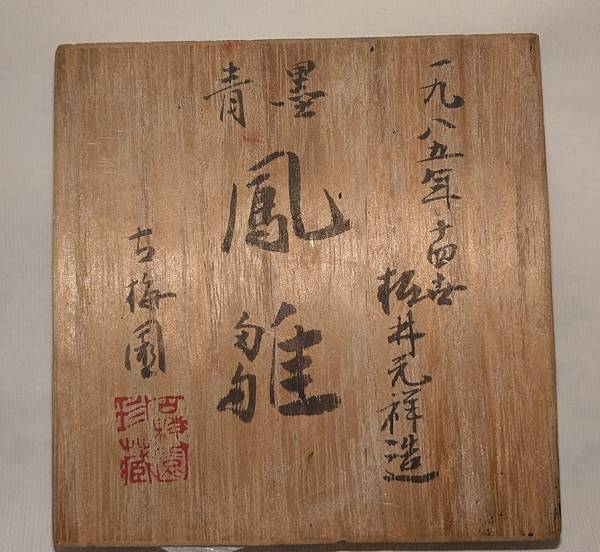 一九八五年 十四世
松井元祥造
青墨
鳳雛
古梅園
古梅園
珍藏